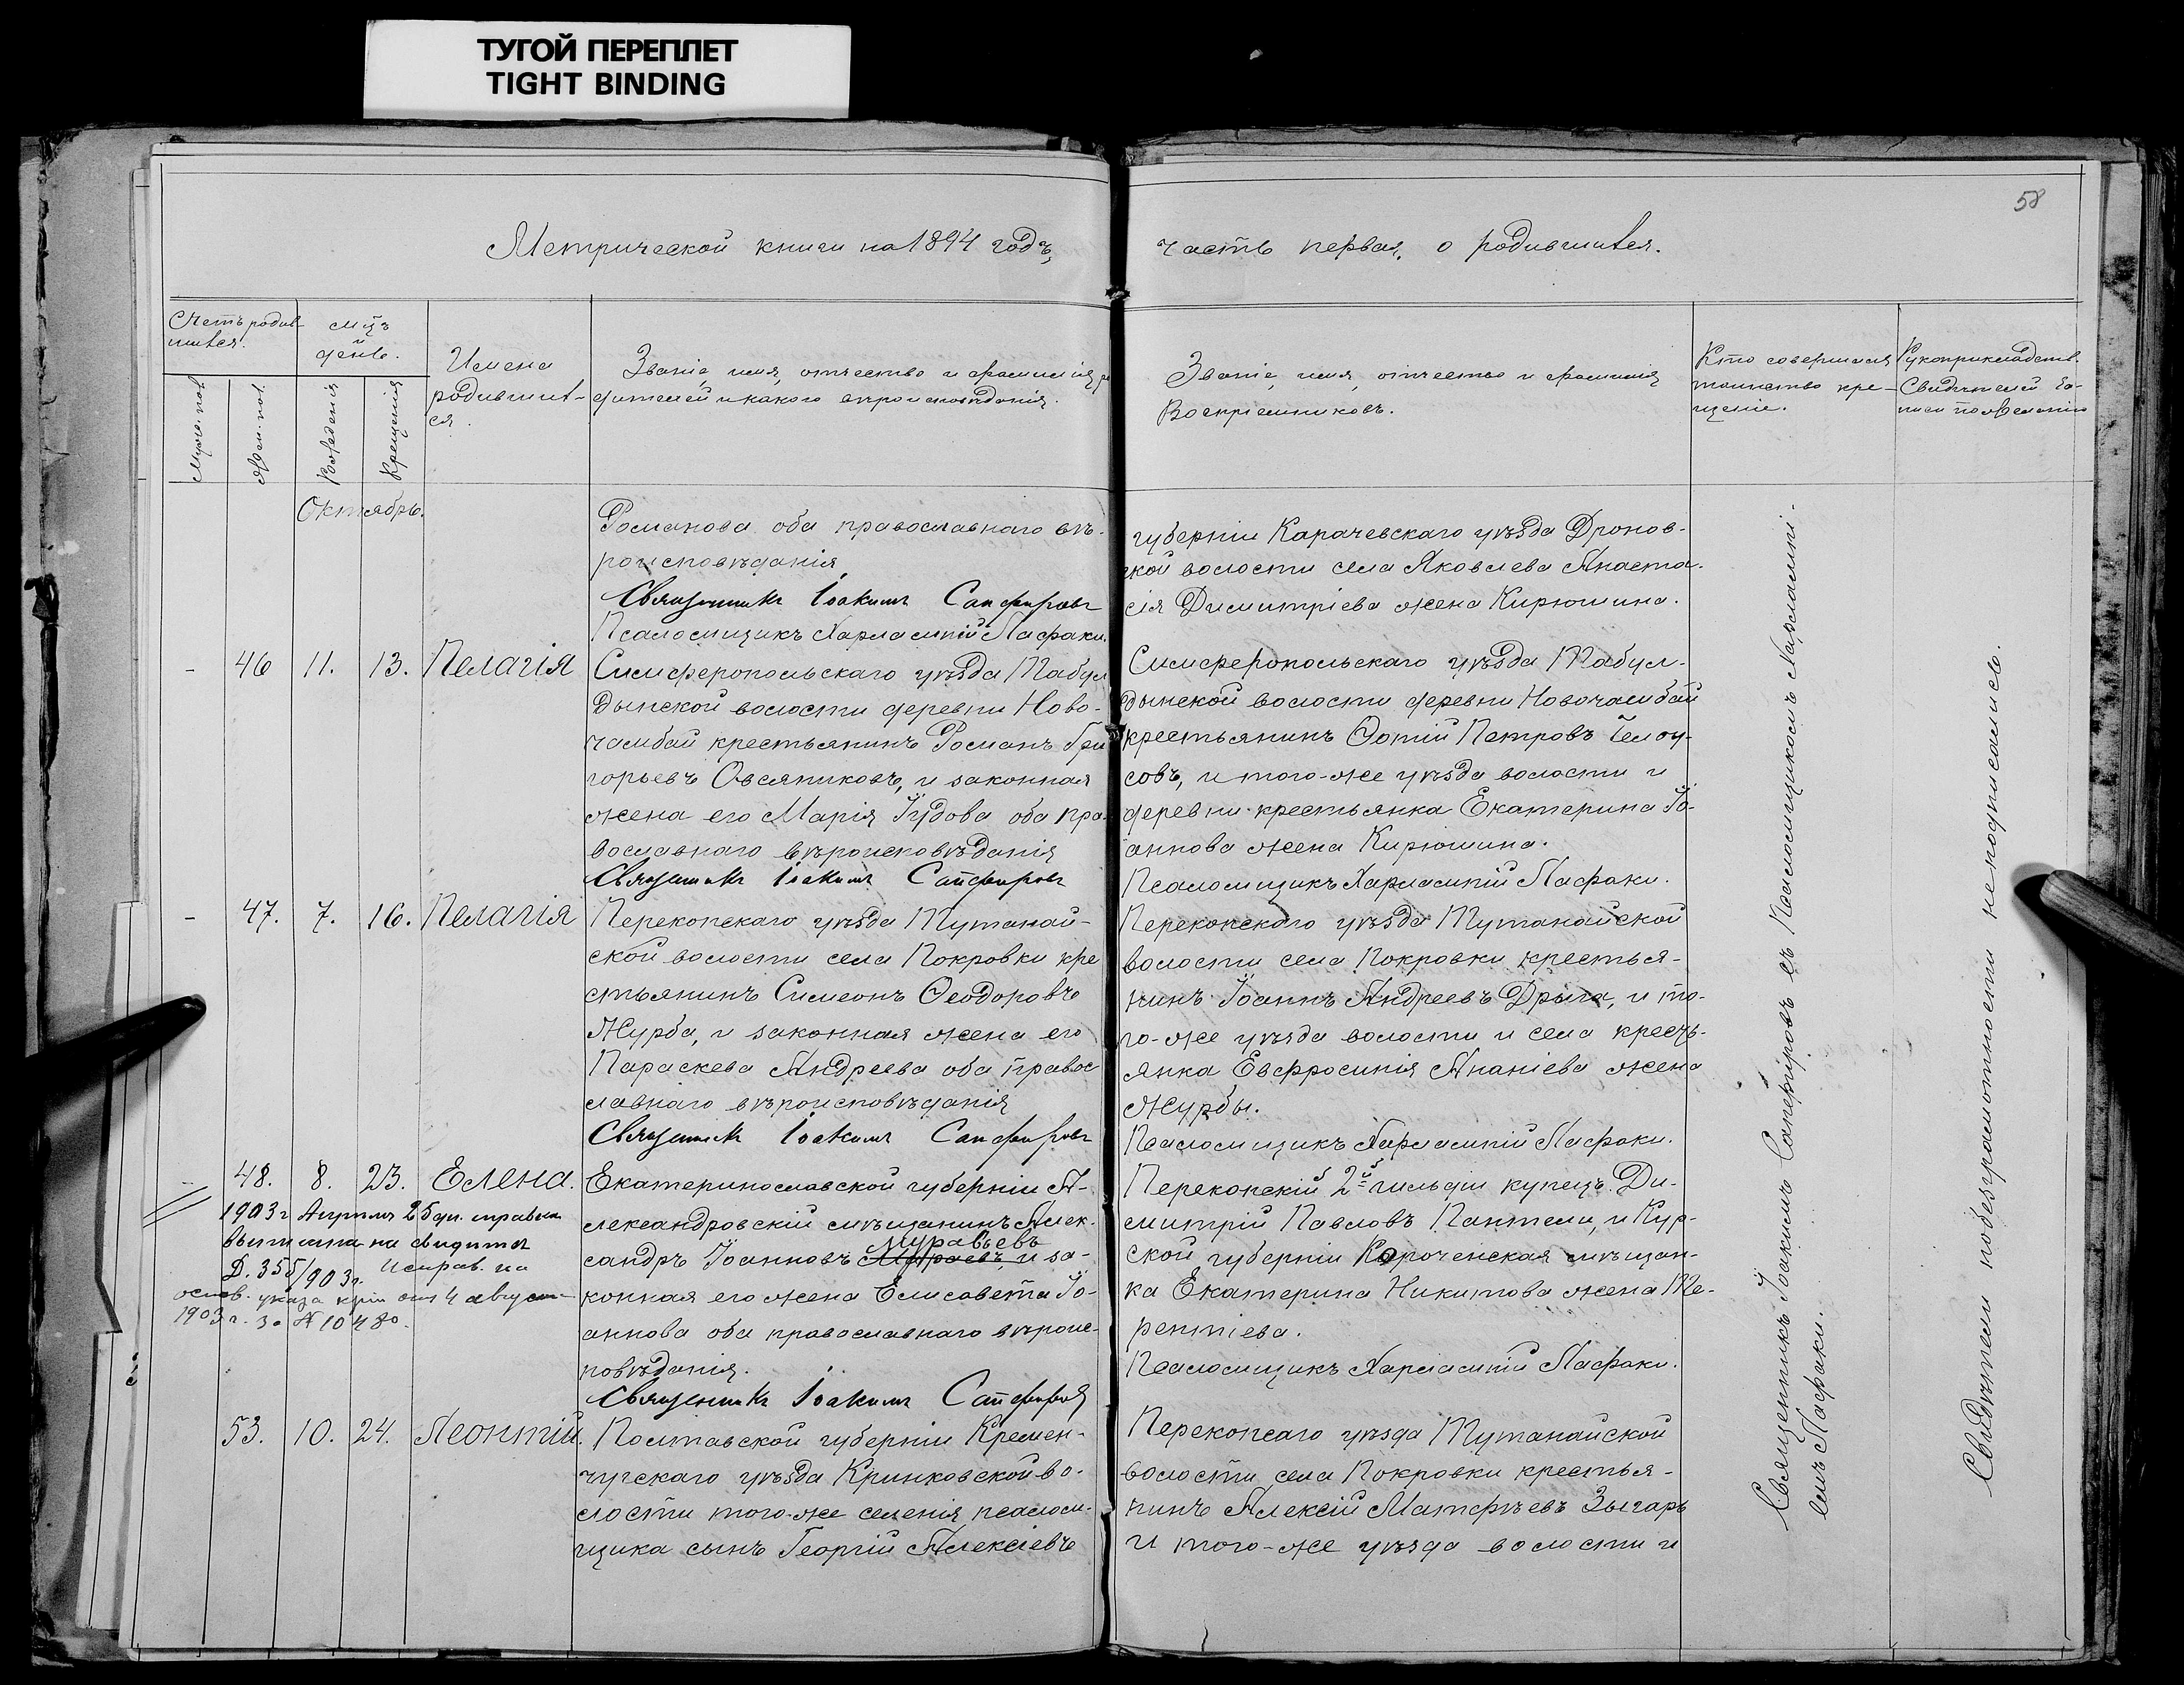 ТУГОЙ ПЕРЕПЛЕТ
TIGHT BINDING
58
Метрической книги на 1894 годъ,
часть первая, о родившихся.
Счетъ родив-
шихся.
Муж. пол.
Жен. пол.
мцъ
день.
Рожденія
Крещенія
Имена
родивших-
ся.
Званіе, имя, отчество и фамилія ро
дителей и какого вѣроисповѣданія.
Званіе, имя, отчество и фамилія
Воспріемниковъ.
Кто совершалъ
таинство кре-
щенія.
Рукоприкладств.
Свидѣтелей за-
писи по желанію
Октябрь.
Романова оба православнаго вѣ-
роисповѣданія
Священникъ Іоакимъ Сапфировъ
Псаломщикъ Харлампій Пафаки.
губерніи Карачевскаго уѣзда Дронов-
ской волости села Яковлева Анаста-
сія Димитріева жена Кирюшина.
- 46 11. 13. Пелагія
Симферопольскаго уѣзда Табул
дынской волости деревни Ново-
чамбай крестьянинъ Романъ Гри
горьевъ Овсяниковъ, и законная
жена его Марія Іудова оба пра-
вославнаго вѣроисповѣданія
Священникъ Іоакимъ Сапфировъ
Симферопольскаго уѣзда Табул-
дынской волости деревни Новочамбай
крестьянинъ Фотій Петровъ
совъ, и того-же уѣзда волости и
деревни крестьянка Екатерина Іо-
аннова жена Кирюшина.
Псаломщикъ Харлампій Пафаки.
- 47. 7. 16. Пелагія
Перекопскаго уѣзда Тутанай-
ской волости села Покровки кре
стьянинъ Симеонъ Ѳеодоровъ
Журба, и законная жена его
Параскева Андреева оба правос
лавнаго вѣроисповѣданія
Священникъ Іоакимъ Сапфировъ
Перекопскаго уѣзда Тутанайской
волости села Покровки крестья-
нинъ Іоаннъ Андреевъ Дрыга, и то-
го-же уѣзда волости и села кресть-
янка Евфросинія Ананіева жена
Журбы.
Псаломщикъ Харлампій Пафаки.
- 48. 8. 23. Елена.
1903 г Апреля 25 дн.
Выписана на
Д. 355/903 г. Исправ. на
основ. указа отъ 4 август
1903 г. за № 10480.
Екатеринославской губерніи А-
лександровскій мѣщанинъ Алек-
Муравьевъ
сандръ Іоанновъ и за-
конная его жена Елисавета Іо-
аннова оба православнаго вѣроис-
повѣданія.
Священникъ Іоакимъ Сапфировъ
Перекопскій 2й гильдіи купецъ Ди-
митрій Павловъ Пантели, и Кур-
ской губерніи Короченская мѣщан-
ка Екатерина Никитова жена Те-
рентіева.
Псаломщикъ Харлампій Пафаки.
53. 10. 24. Леонтій.
Полтавской губерніи Кремен-
чугскаго уѣзда Кринковской во-
лости того-же селенія псалом-
щика сынъ Георгій Алексіевъ
Перекопсаго уѣзда Тутанайской
волости села Покровки крестья-
нинъ Алексій Матфѣевъ Зыгарь
и того-же уѣзда волости и
Священникъ Іоакимъ Сапфировъ съ Псаломщикомъ Харлампі-
емъ Пафаки.
Свидѣтели по безграмотности неподписались.